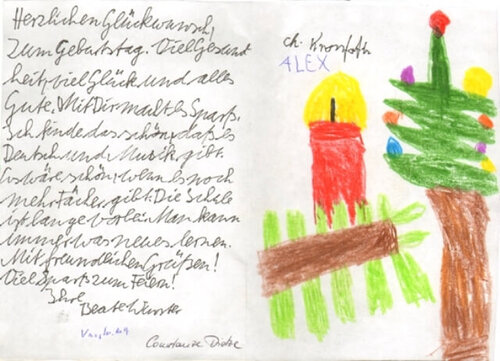 Herzlichen Glückwunsch,
zum Geburtstag. Viel Gesund
heit, viel Glück und alles
Gute. Mit Dir macht es Spaß.
Ich finde das schön, daß es
Deutsch und Musik gibt.
Es wäre schön, wenn es noch
mehr Fächer gibt. Die Schule
ist lange vorbei. Man kann
immer was neues lernen.
Mit freundlichen Grüßen!
Viel Spaß zum Feiern!
Ihre
Beate
Constanze
ch.
ALEX